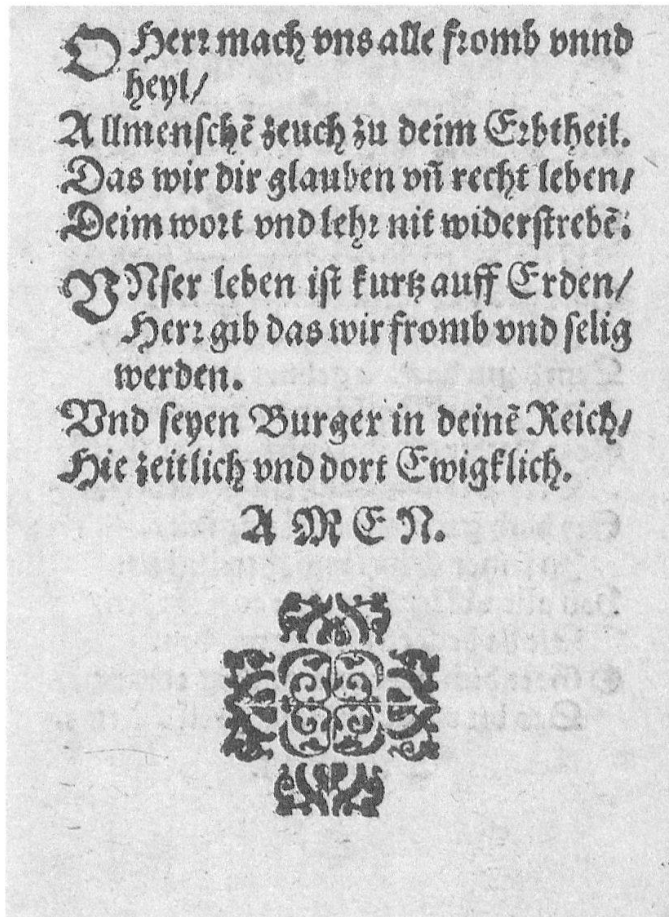 O Herr mach vns alle fromb vnnd
heyl/
Allmenschẽ zeuch zu deim Erbtheil.
Das wir dir glauben vñ recht leben/
Deim wort vnd lehr nit widerstrebẽ.
VNser leben ist kurtz auff Erden/
Herr gib das wir fromb vnd selig
werden.
Vnd seyen Burger in deinẽ Reich/
Hie zeitlich vnd dort Ewigklich.
AMEN.